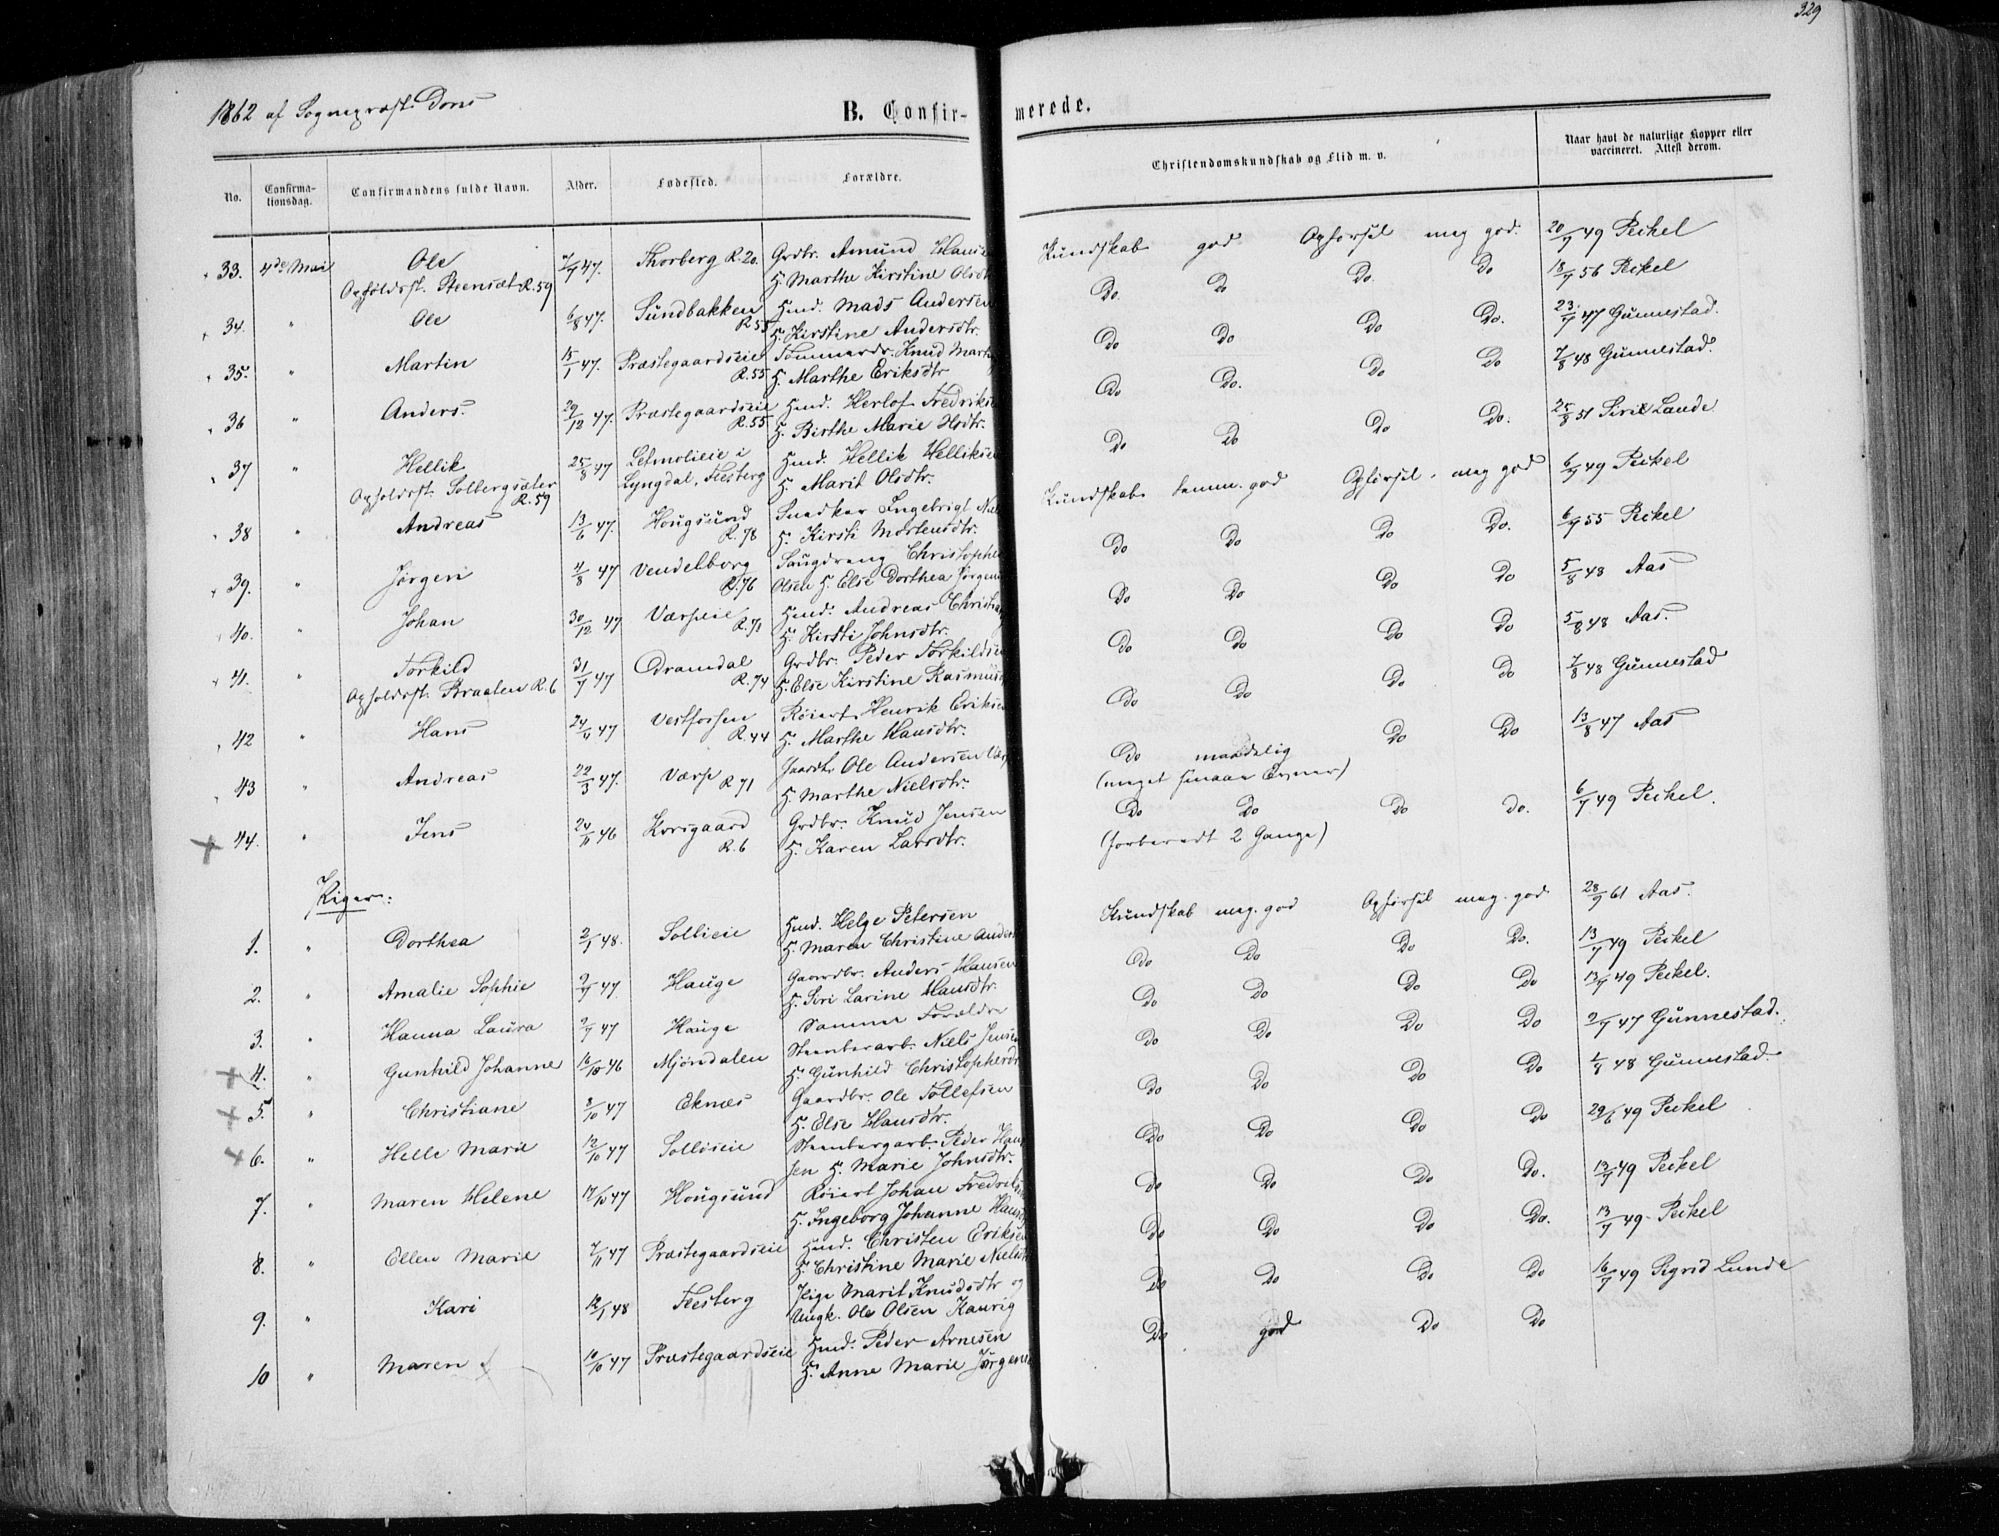 329
1862 af Sogneprest Dons
B. Confirmerede.
No. Confirmationsdag. Confirmandens fulde Navn. Alder. Fødested. Forældre. Christendomskundskab og Flid m. v. Naar havt de naturlige Kopper eller vaccineret. Attest derom.
33. 4de Mai Ole 7/9 47. Thorberg R.20. Grdbr. Amund Hansen Kundskab god Opførsel meg god. 20/9 49 Peckel
Opholdsst. Steensæt R.59 H. Marthe Kirstine Olsdtr
34. " Ole 6/8 47. Sundbakken Hmd. Mads Andersen Do. Do Do. Do 18/9 56 Peckel
R.55 H. Kirstine Andersdtr.
35. " Martin 15/1 47. Præstegaardseie Tømmerdr. Knud Do Do Do Do. 23/7 47 Gunnestad.
R.55 H. Marthe Eriksdtr
36 " Anders. 29/12 47. Præstegaardseie Hmd. Herlof Fredriksen Do Do. Do Do 7/8 48 Gunnestad.
R.55. H. Birthe Marie Olsdtr.
37 " Hellik 25/8 47 i Hmd. Hellik Helliksen Do Do Do Do. 25/8 51 Lande
Opholdsst. Solbergsæter R.59 Lyngdal, Flesberg H. Marit Olsdtr.
38 " Andreas 13/6 47. Hougsund Snedker Ingebrigt Kundskab temm. god Opførsel meg god 6/9 49 Peckel
R.78 H. Kirsti Mortensdtr.
39. " Jørgen 4/8 47 Vendelborg Saugdreng Christopher Do Do Do Do. 6/9 55 Peckel
R.76 Olsen H. Else Dorthea
40. " Johan 30/12 47 Værpeie Hmd. Andreas Do Do Do Do 5/8 48 Aas
R.71 H. Kirsti Johnsdtr.
41. " Torkild 31/7 47 Dramdal Grdbr. Peder Torkildsen Do Do Do Do 5/8 48 Aas.
Opholdsst. Braaten R.6 R.74 H. Else Kirstine
42 " Hans 24/11 47 Vestfossen Røiert Henrik Eriksen Do Do Do Do 7/8 48 Gunnestad
R.44 H. Marthe Hansdtr.
43 " Andreas 22/3 47. Værpe Gaardbr Ole Andersen Do maadelig Do Do 13/8 47 Aas
R 71 H. Marthe Nielsdtr. (meget smaae Evner)
44. " Jens 24/11 46 Korsgaard Grdbr. Knud Jensen Do Do Do do. 6/7 49 Peckel.
R.6 H. Karen Larsdtr. (forberedt 2 Gange)
Piger:
1. " Dorthea 2/1 48. Solbieie Hmd. Helge Petersen Kundskab meg. god Opførsel meg. god 28/9 61 Aas.
H. Maren Christine
2. " Amalie Sophie 2/7 47 Hauge Gaardbr. Anders Hansen Do Do Do Do. 13/7 49 Peckel
H. Siri Larine Hansdtr.
3. " Hanna Laura 2/7 47 Hauge Samme Forældre Do Do Do Do 13/7 49 Peckel.
4. " Gunhild Johanne 16/10 46 Mjøndalen Niels Jensen Do Do Do Do 2/7 47 Gunnestad.
H. Gunhild
5. " Christiane 8/10 47 Eknæs Gaardbr. Ole Tollefsen Do Do Do Do 48 Gunnestad.
H. Else Hansdtr.
6. " Helle Marie 12/10 47 Solbieie Peder Han- Do Do Do Do 29/6 49 Peckel
sen H. Marie Johnsdtr.
7. " Maren Helene 17/10 47 Hougsund Røiert Johan Do Do Do Do. 13/7 49 Peckel
H. Ingeborg Johanne
8. " Ellen Marie 7/11 47 Præstegaardseie Hmd. Christen Eriksen Do Do Do Do. 13/7 49 Peckel
H. Christine Marie
9. " Kari 12/1 48 Flesberg Pige Marit Knudsdtr og Do Do Do Do 16/7 49 Sigrid Lunde
Ungk. Ole Olsen
10 " Maren 10/10 47 Præstegaardseie Hmd. Peder Arnesen Do god Do Do
H. Anne Marie